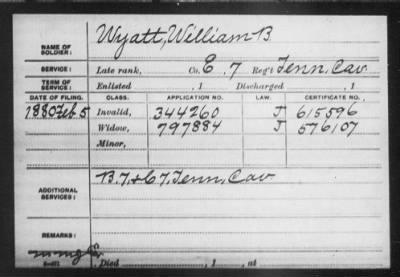 NAME OF SOLDIER: Wyatt, William B.
SERVICE: Late rank, Co. E, 7 Reg't Tenn, Cav.
TERM OF SERVICE: Enlisted , 1 Discharged , 1
DATE OF FILING. CLASS. APPLICATION NO. LAW. CERTIFICATE NO.
1880 Feb 5 Invalid, 344260 J 615596
Widow, 797884 J 576107
Minor,
ADDITIONAL SERVICES: B. 7, & C 7, Tenn, Cav
REMARKS:
Died , 1 , at